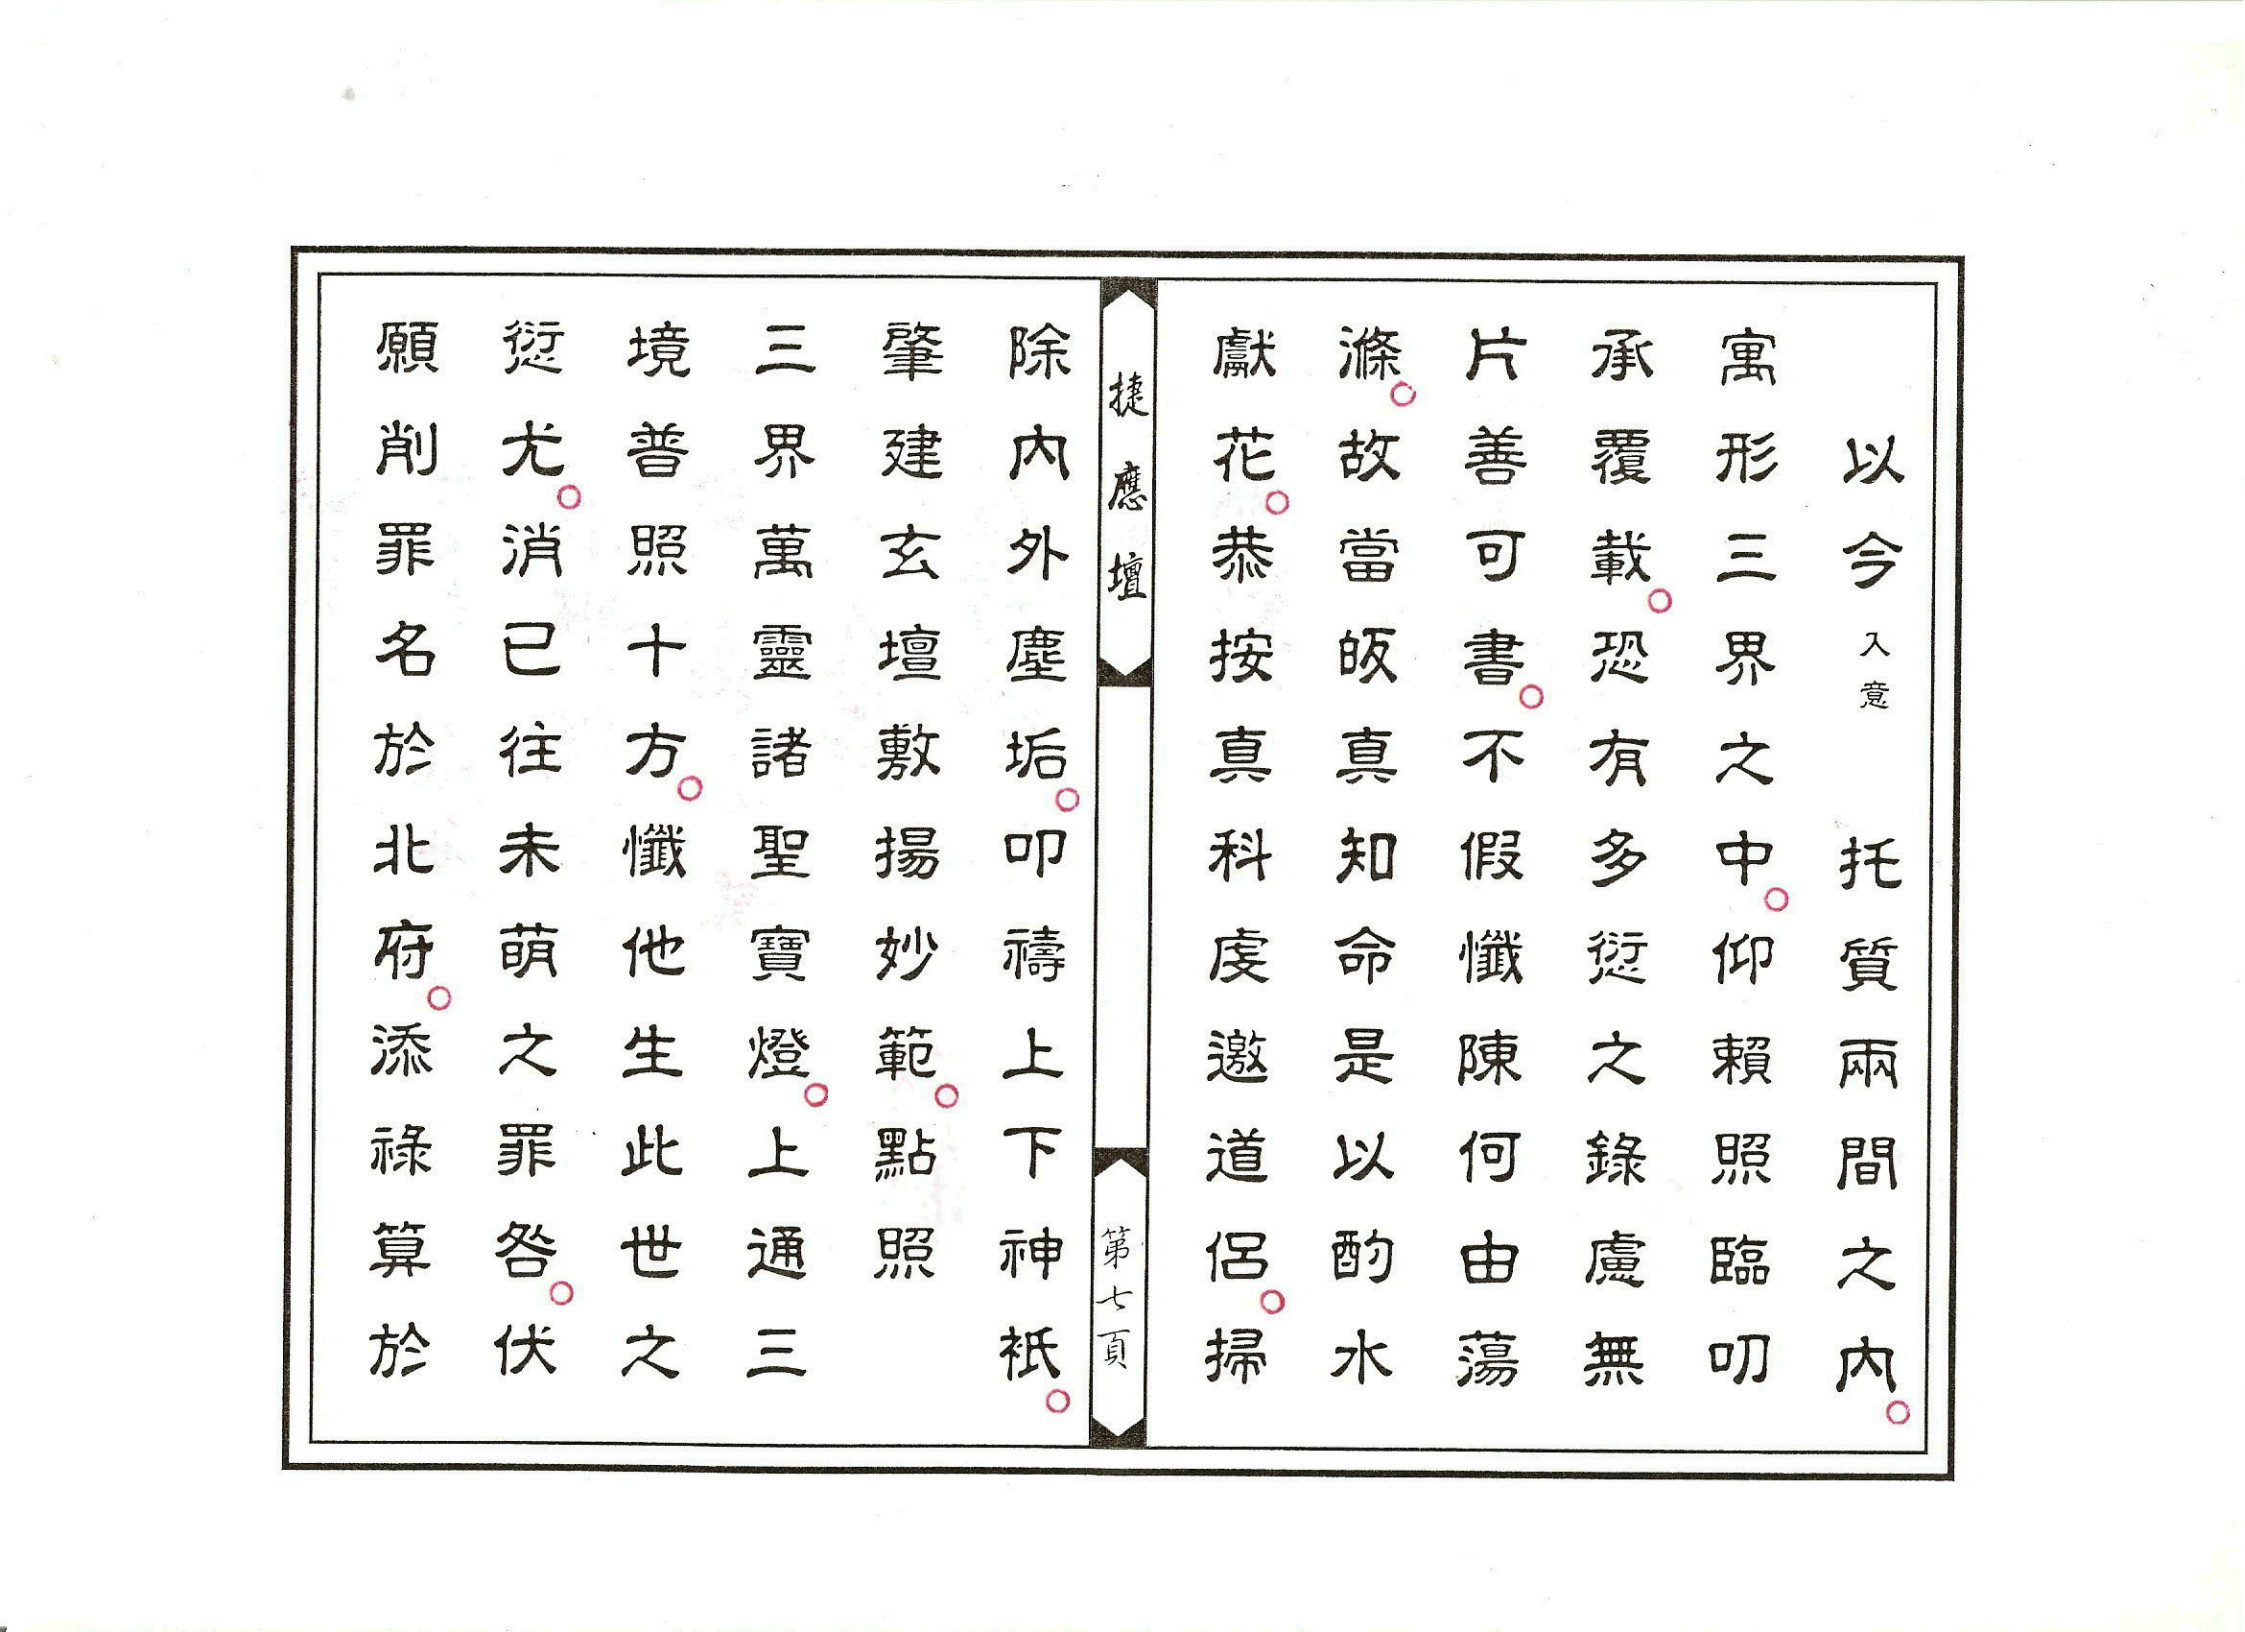 以今 入意 托質兩間之內○
寓形三界之中○仰賴照臨叨
承覆載○恐有多愆之錄慮無
片善可書○不假懺陳何由蕩
滌○故當皈真知命是以酌水
獻花○恭按真科虔邀道侶○掃
捷應壇
第七頁
除內外塵垢○叩禱上下神祇○
肇建玄壇敷揚妙範○點照
三界萬靈諸聖寶燈○上通三
境普照十方○懺他生此世之
愆尤○消已往未萌之罪咎○伏
願削罪名於北府○添祿算於